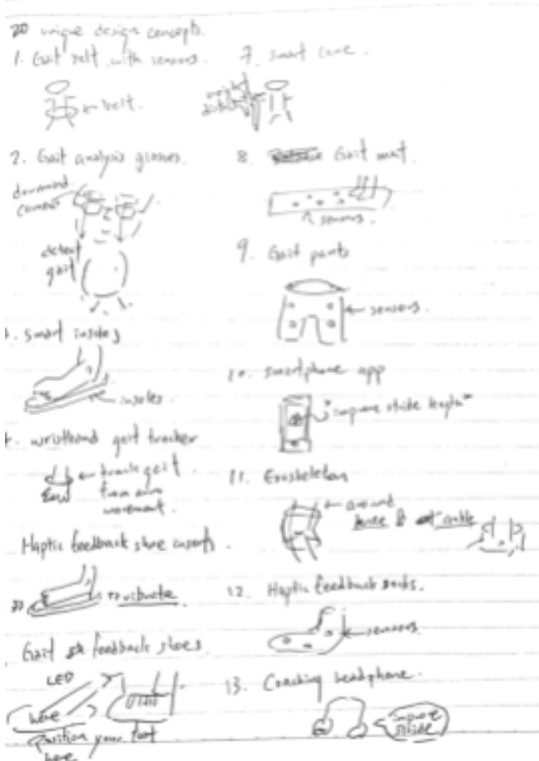 20 unique design concepts.
1. Gait belt with sensors.
belt.
2. Gait analysis glasses.
downward
camera
detect
gait
. smart insoles
insoles
. wristband gait tracker
track gait
from arm
movement.
Haptic feedback shoe inserts.
vibrate
Gait feedback shoes
LED
here
position your foot
here
7. smart cane.
weight
8. Gait mat.
sensors.
9. Gait pants
sensors.
10. smartphone app
"improve stride length"
11. Exoskeleton
around
knee & ankle
12. Haptic feedback socks.
sensors
13. Coaching headphone.
improve
stride